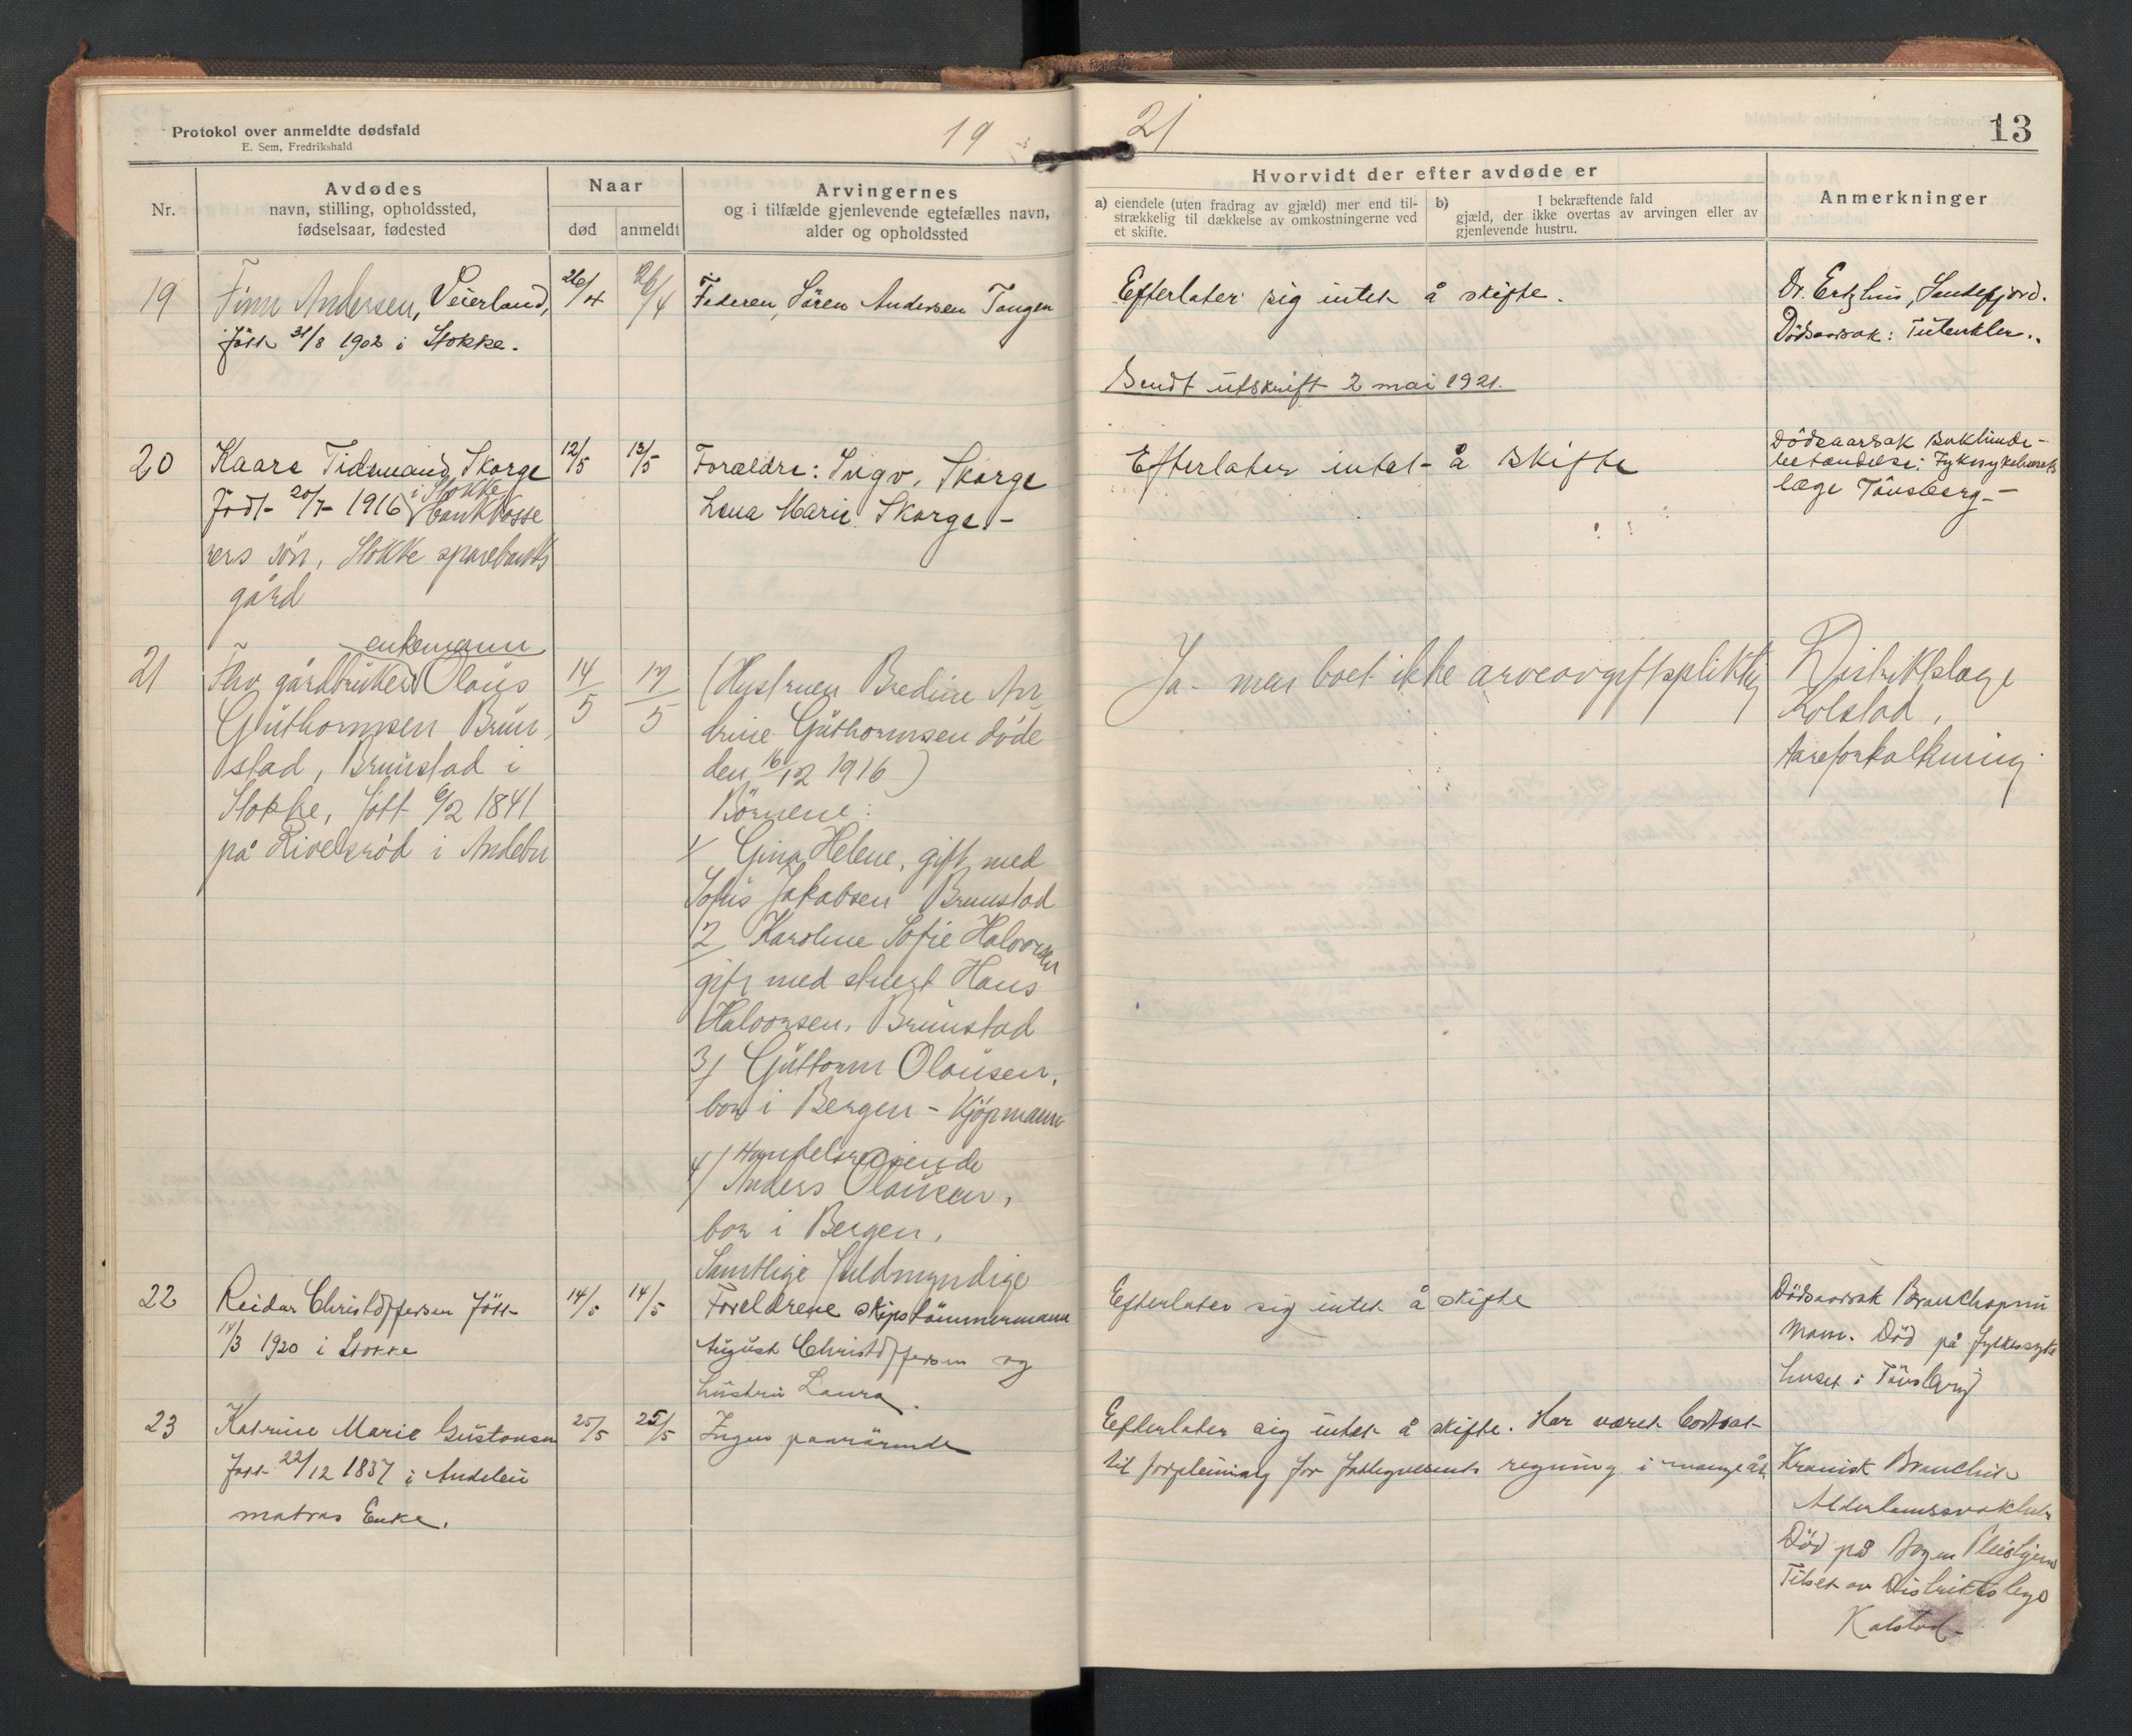 Protokol over anmeldte dødsfald
E. Sem, Fredrikshald
19
21
13
Nr.
Avdødes
navn, stilling, opholdssted,
fødselsaar, fødested
Naar
død
anmeldt
Arvingernes
og i tilfælde gjenlevende egtefælles navn,
alder og opholdssted
Hvorvidt der efter avdøde er
a) eiendele (uten fradrag av gjæld) mer end til-
strækkelig til dækkelse av omkostningerne ved
et skifte.
b) I bekræftende fald
gjæld, der ikke overtas av arvingen eller av
gjenlevende hustru.
Anmerkninger
19
Finn Andersen, Veierland,
født 31/8 1902 i Stokke.
26/4
26/4
Federen, Sören Andersen Tangen
Efterlater sig intet å skifte.
Dr. , Sandefjord.
Dödsaarsak: Tuberkler.
Sendt utskrift 2 mai 1921.
20
Kaare Tidemand Skorge
Født 20/7 1916 i Stokke
bankkasse
rers sön, Stokke sparebanks
gård
12/5
13/5
Forældre: Ingv. Skorge
Lena Marie Skorge.-
Efterlater intet å skifte
Dödsaarsak
betændelse: Fylkessykehusets
læge Tönsberg-
21
enkemann
Fhv gårdbruker Olaus
Guthormsen Brun
stad, Brunstad i
Stokke, født 6/2 1841
på Rivelsrød i Andebu
14/5
17/5
(Hustruen Bredine An
drine Guthormsen døde
den 16/12 1916)
Börnene:
1/ Gina Helene, gift med
Sofus Jakobsen Brunstad
2/ Karoline Sofie Halvorsen
gift med stuert Hans
Halvorsen, Brunstad
3/ Guttorm Olausen,
bor i Bergen - Kjöpmann
4/ Handelsreisende
Anders Olausen,
bor i Bergen,
Samtlige fuldmyndige
Ja- men boet ikke arveavgiftspliktig
Distriktslæge
Kolstad,
Aareforkalkning
22
Reidar Christoffersen född
14/3 1920 i Stokke
14/5
14/5
Foreldrene skipstömmermann
August Christoffersen og
hustru Laura.
Efterlater sig intet å skifte
Dödsaarsak Bronchopnu
mom. Död på fylkessyke
huset i Tönsberg
23
Katrine Marie Gustavsen
født 22/12 1837 i Andebu
matros Enke.
25/5
25/5
Ingen paarörende
Efterlater sig intet å skifte. Har været bortsat
til forpleining for fattigvesenets regning i mange år
Kronisk Bronchit
Alderdomssvakhet
Död på Bogen Pleiehjem
Tilset av Distriktslege
Kolstad-